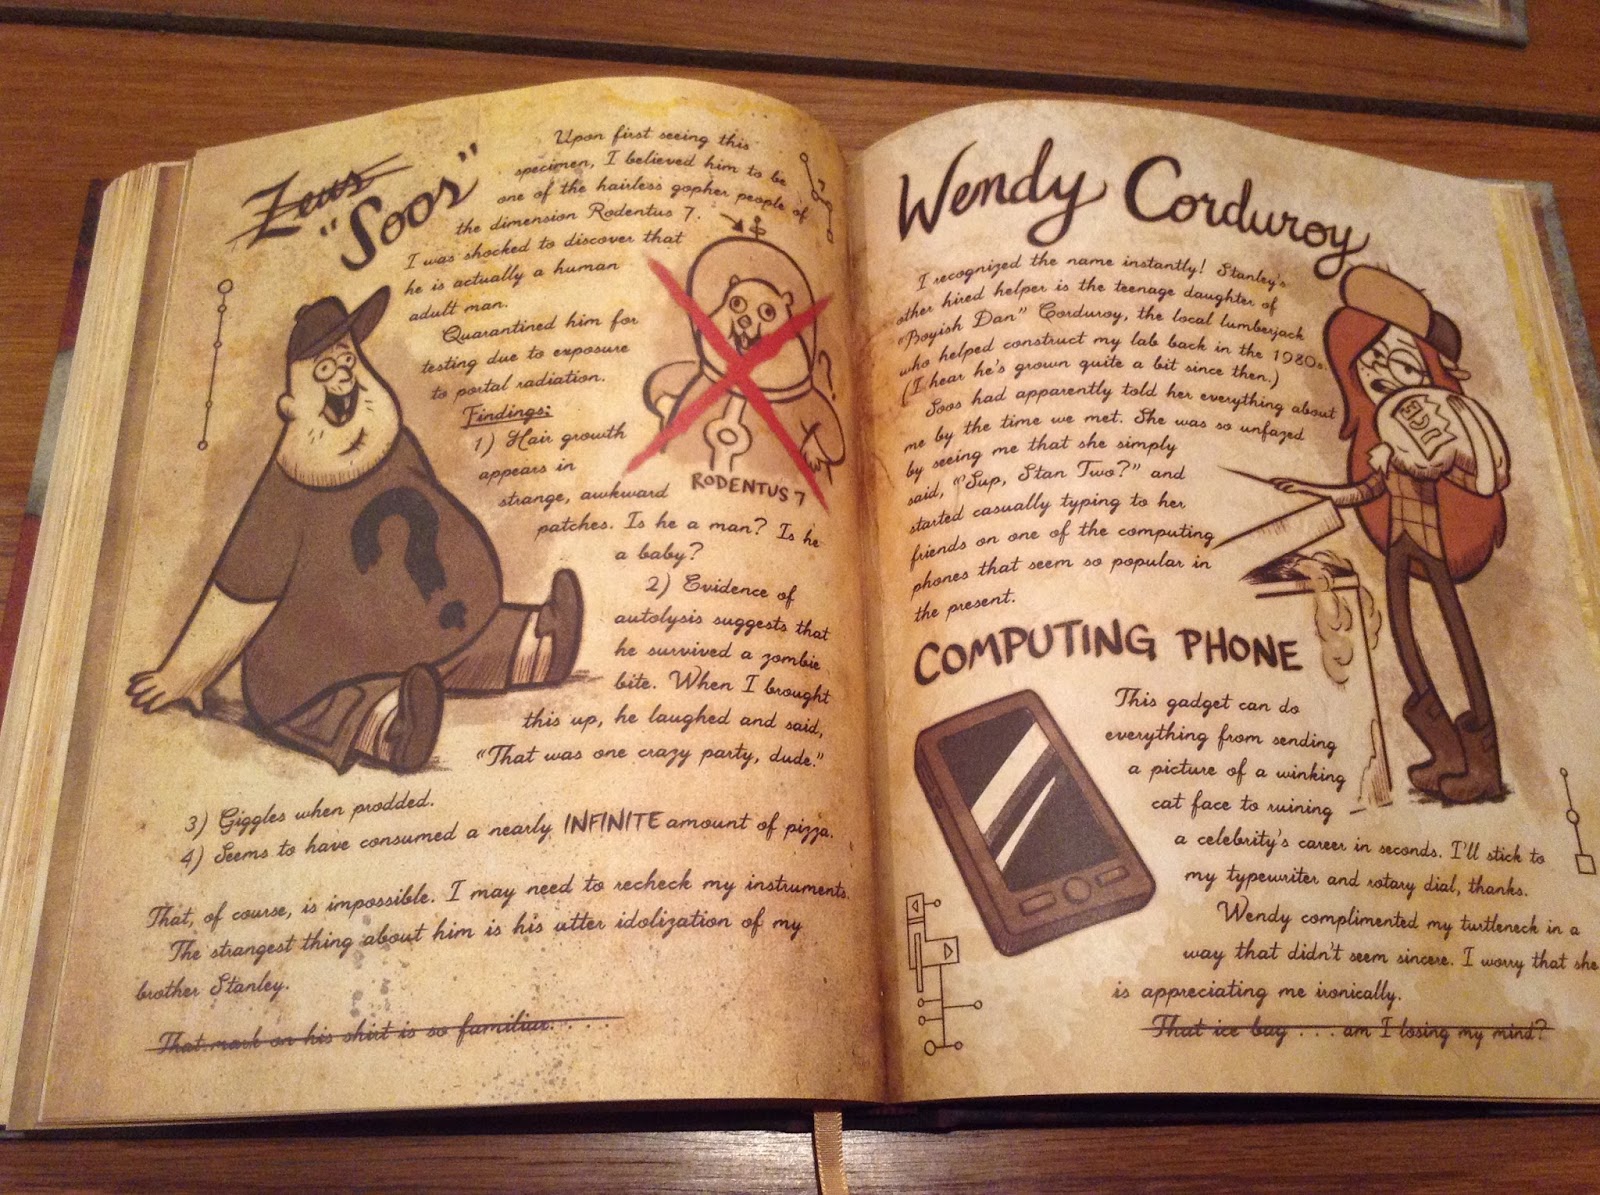 Zeus
"Soos"
Upon first seeing this
specimen, I believed him to be
one of the hairless gopher people of
the dimension Rodentus 7.
I was shocked to discover that
he is actually a human
adult man.
Quarantined him for
testing due to exposure
to portal radiation.
Findings:
1) Hair growth
appears in
strange, awkward
patches. Is he a man? Is he
a baby?
RODENTUS 7
?
?
2) Evidence of
autolysis suggests that
he survived a zombie
bite. When I brought
this up, he laughed and said,
"That was one crazy party, dude."
3) Giggles when prodded.
4) Seems to have consumed a nearly INFINITE amount of pizza.
That, of course, is impossible. I may need to recheck my instruments.
The strangest thing about him is his utter idolization of my
brother Stanley.
That mark on his shirt is so familiar. . . .
Wendy Corduroy
I recognized the name instantly! Stanley's
other hired helper is the teenage daughter of
"Boyish Dan" Corduroy, the local lumberjack
who helped construct my lab back in the 1980s.
(I hear he's grown quite a bit since then.)
Soos had apparently told her everything about
me by the time we met. She was so unfazed
by seeing me that she simply
said, "Sup, Stan Two?" and
started casually typing to her
friends on one of the computing
phones that seem so popular in
the present.
ICE
COMPUTING PHONE
This gadget can do
everything from sending
a picture of a winking
cat face to ruining
a celebrity's career in seconds. I'll stick to
my typewriter and rotary dial, thanks.
Wendy complimented my turtleneck in a
way that didn't seem sincere. I worry that she
is appreciating me ironically.
That ice bag . . . am I losing my mind?